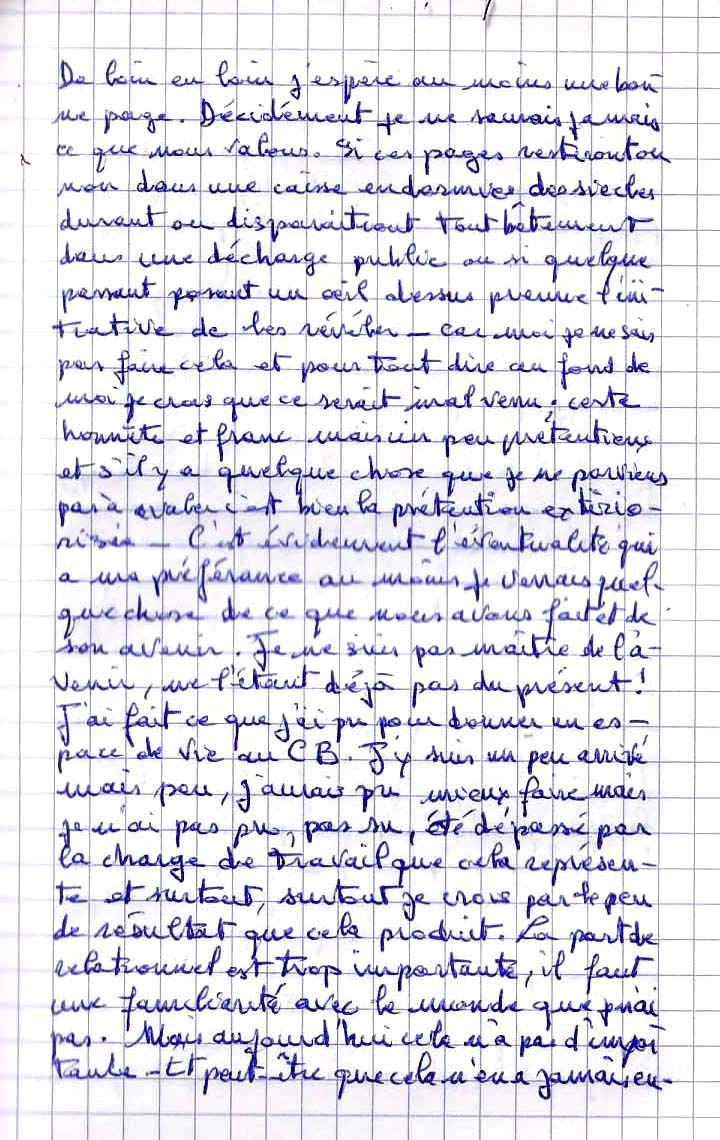 De loin en loin j'espère au moins une bon
ne page. Décidément je ne saurais jamais
ce que nous valons. Si ces pages resteront ou
non dans une caisse endormies des siecles
durant ou disparaitront tout bêtement
dans une décharge public ou si quelque
passant posant un oeil dessus prenne l'ini-
tiative de les révéler - car moi je ne sais
pas faire cela et pour tout dire au fond de
moi je crois que ce serait mal venu, certe
honnête et franc mais un peu prétentieux
et s'il y a quelque chose que je ne parviens
pas à avaler c'est bien la prétention extério-
risée - C'est évidemment l'éventualité qui
a ma préférance au moins je verrais quel-
que chose de ce que nous avons fait et de
son avenir. Je ne suis pas maître de l'a-
venir, ne l'étant déjà pas du présent!
J'ai fait ce que j'ai pu pour donner un es-
pace de vie au CB. J'y suis un peu arrivé
mais peu, j'aurais pu mieux faire mais
je n'ai pas pu, pas su, été dépassé par
la charge de travail que cela représen-
te et surtout, surtout je crois par le peu
de résultat que cela produit. La part de
relationnel est trop importante, il faut
une familiarité avec le monde que j'nai
pas. Mais aujourd'hui cela n'a pas d'impor
tance - Et peut-être que cela n'en a jamais eu-